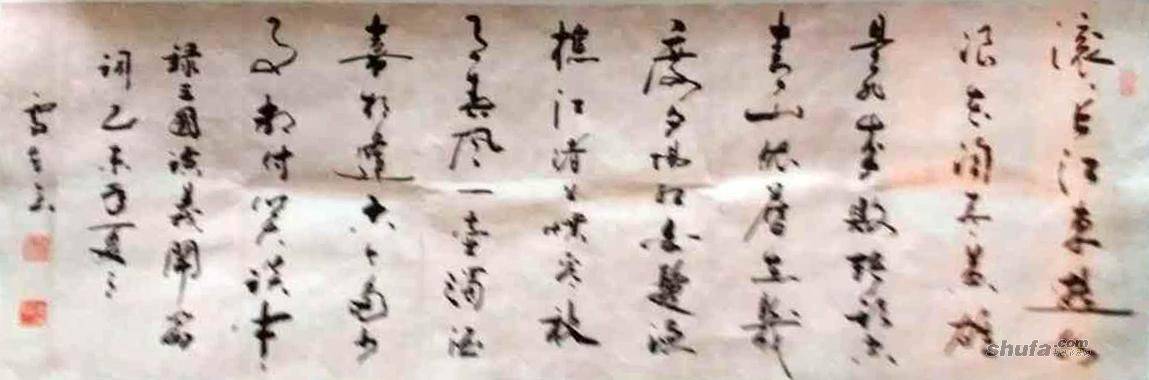 滚滚长江东逝水
浪花淘尽英雄
是非成败转头空
青山依旧在几
度夕阳红白发渔
樵江渚上惯看秋
月春风一壶浊酒
喜相逢古今多少
事都付笑谈中
录三国演义开篇
词己未年夏
shufa.com